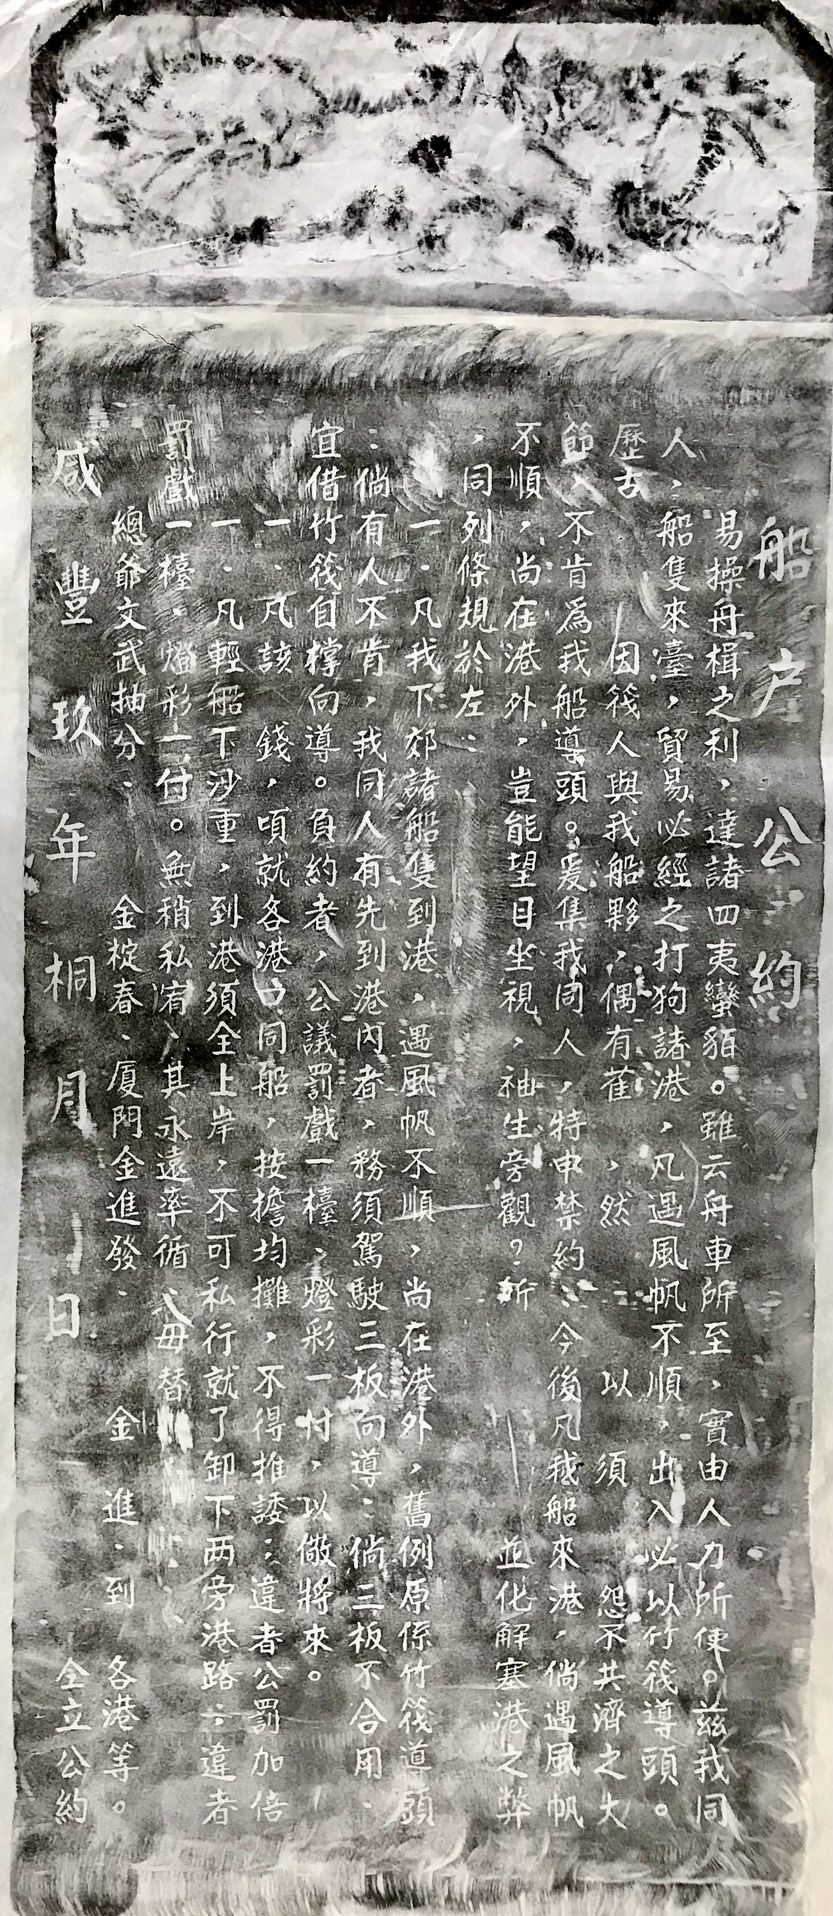 船户公約
易操舟楫之利，達諸四夷蠻貊。雖云舟車所至，實由人力所使。兹我同
人，船隻來臺，貿易必經之打狗諸港，凡遇風帆不順，出入必以竹筏導頭。
歷古 因筏人與我船夥，偶有萑 ，然 以 須 怨不共濟之失
節、不肯爲我船導頭。爰集我同人，特申禁約：今後凡我船來港，倘遇風帆
不順，尚在港外，豈能望目坐視，袖生旁觀？ 並化解塞港之弊
，同列條規於左：
一．凡我下郊諸船隻到港，遇風帆不順，尚在港外，舊例原係竹筏導頭
：倘有人不肯，我同人有先到港内者，務須駕駛三板向導：倘三板不合用、
宜借竹筏自撐向導。負約者，公議罰戲一檯、燈彩一付，以儆將來。
一．凡該 錢，頃就各港口同船，按擔均攤，不得推諉：違者公罰加倍
一．凡輕船下沙重，到港須全上岸，不可私行就了卸下两旁港路：違者
罰戲一檯、燈彩一付。無稍私宥、其永遠率循、毋替
總爺文武抽分、 金椗春、厦門金進發、 金 進、到 各港等。
咸豐玖年桐月 日 仝立公約